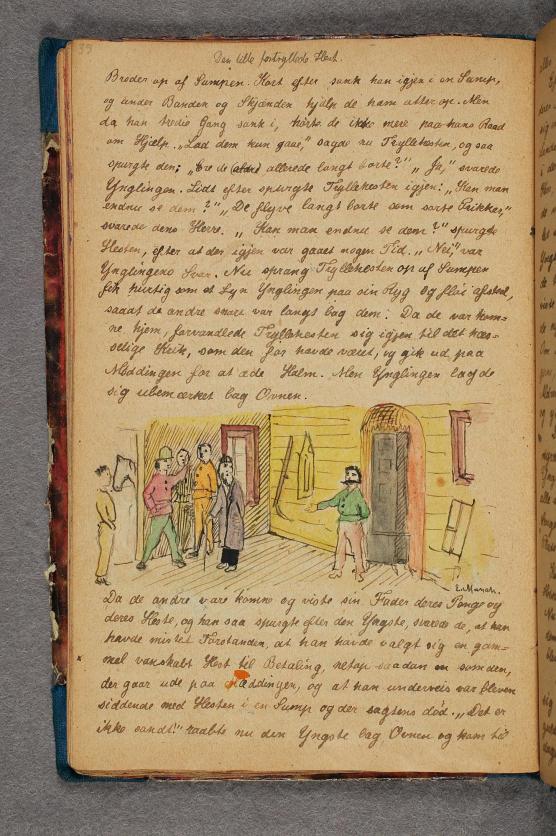 39
Den lille fortryllede Hest.
Broder op af Sumpen. Kort efter sank han igjen i en Sump,
og under Banden og Skjænden hjulpe de ham atter op. Men
da han tredie Gang sank i, hørte de ikke mere paa hans Raab
om Hjælp. „Lad dem kun gaae," sagde nu Tryllehesten, og saa
spurgte den; „Ere de allerede langt borte?" „Ja," svarede
Ynglingen. Lidt efter spurgte Tryllehesten igjen: „Kan man
endnu se dem?" „De flyve langt borte som sorte Prikker,"
svarede dens Herre. „Kan man endnu se dem?" spurgte
Hesten, efter at der igjen var gaaet nogen Tid. „Nei," var
Ynglingens Svar. Nu sprang Tryllehesten op af Sumpen
fik hurtig som et Lyn Ynglingen paa sin Ryg og fløi afsted,
saaat de andre snart var langt bag dem. Da de var kom-
ne hjem, forvandlede Tryllehesten sig igjen til det hæs-
selige Krik, som den før havde været, og gik ud paa
Møddingen for at æde Halm. Men Ynglingen lagde
sig ubemærket bag Ovnen.
E. Munch.
Da de andre vare komne og viste sin Fader deres Penge og
deres Heste, og han saa spurgte efter den Yngste, svarede de, at han
havde mistet Forstanden, at han havde valgt sig en gam-
mel vanskabt Hest til Betaling, netop saadan en som den,
der gaar ude paa Møddingen, og at han underveis var bleven
siddende med Hesten i en Sump og der sagtens død. „Det er
ikke sandt!" raabte nu den Yngste bag Ovnen og kom til